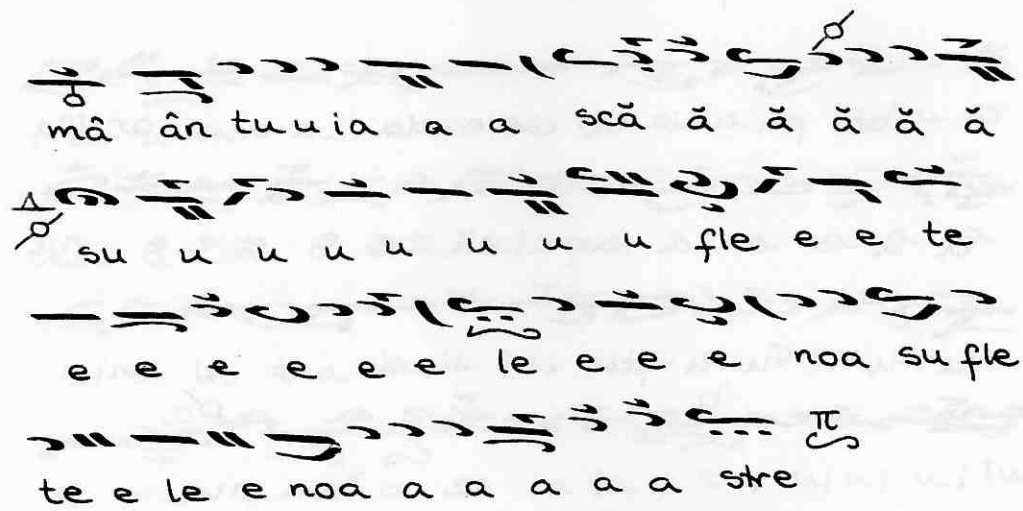 mâ ân tu u ia a a scă ă ă ă ă ă
su u u u u u u u fle e e te
e e e e e e le e e e noa su fle
te e le e noa a a a a a stre π